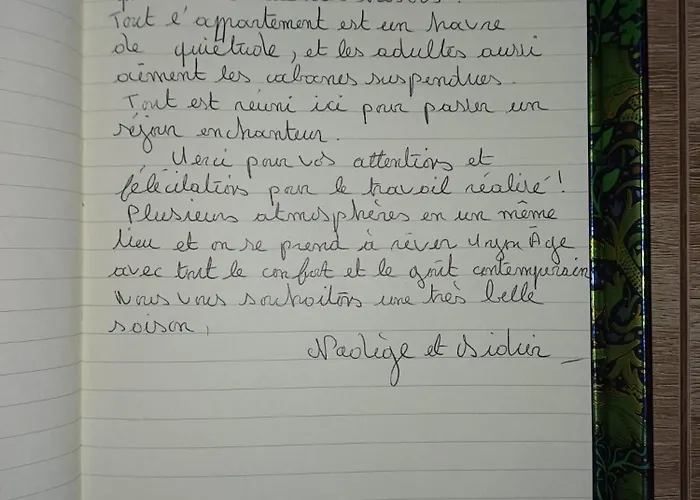 Tout l'appartement est un havre
de quiétude, et les adultes aussi
aiment les cabanes suspendues.
Tout est réuni ici pour passer un
séjour enchanteur.
Merci pour vos attentions et
félicitations pour le travail réalisé !
Plusieurs atmosphères en un même
lieu et on se prend à rêver Moyen Âge
avec tout le confort et le goût contemporain
Nous vous souhaitons une très belle
saison,
Nadège et Didier